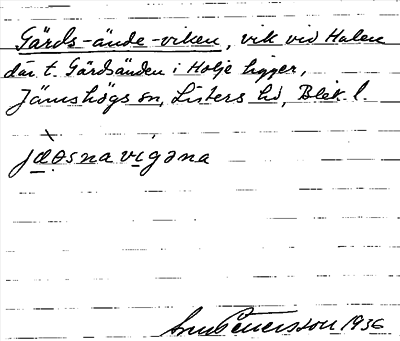 Gärds-ände-viken, vik vid Halen
där t. Gärdsänden i Holje ligger,
Jämshögs sn, Listers hd, Blek. l.
jæosnavigəna
Pettersson 1936